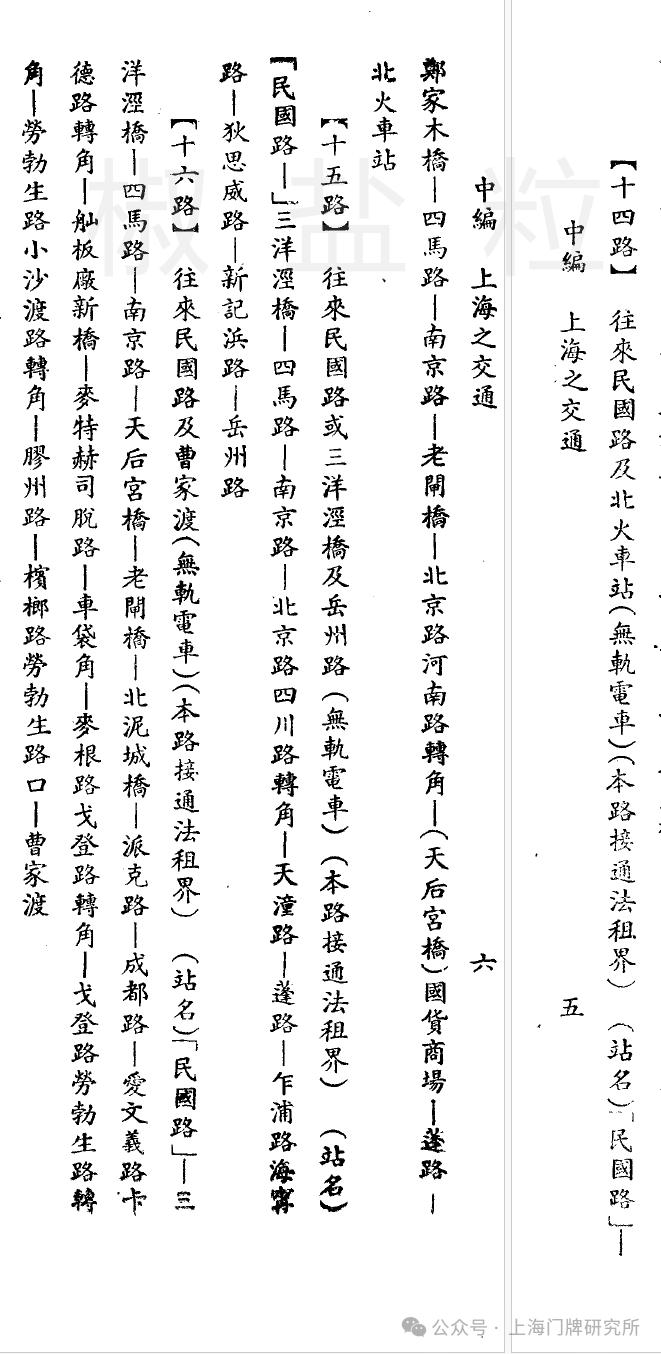 【十四路】　往來民國路及北火車站(無軌電車)(本路接通法租界)　(站名)「民國路」—
中編　上海之交通　五
中編　上海之交通　六
鄭家木橋—四馬路—南京路—老閘橋—北京路河南路轉角—(天后宮橋)國貨商場—蓬路—
北火車站
【十五路】　往來民國路或三洋涇橋及岳州路(無軌電車)(本路接通法租界)　(站名)
「民國路—」三洋涇橋—四馬路—南京路—北京路四川路轉角—天潼路—蓬路—乍浦路海甯
路—狄思威路—新記浜路—岳州路
【十六路】　往來民國路及曹家渡(無軌電車)(本路接通法租界)　(站名)「民國路」—三
洋涇橋—四馬路—南京路—天后宮橋—老閘橋—北泥城橋—派克路—成都路—愛文義路卡
德路轉角—舢板廠新橋—麥特赫司脫路—車袋角—麥根路戈登路轉角—戈登路勞勃生路轉
角—勞勃生路小沙渡路轉角—膠州路—檳榔路勞勃生路口—曹家渡
椒盐粒
公众号 · 上海门牌研究所